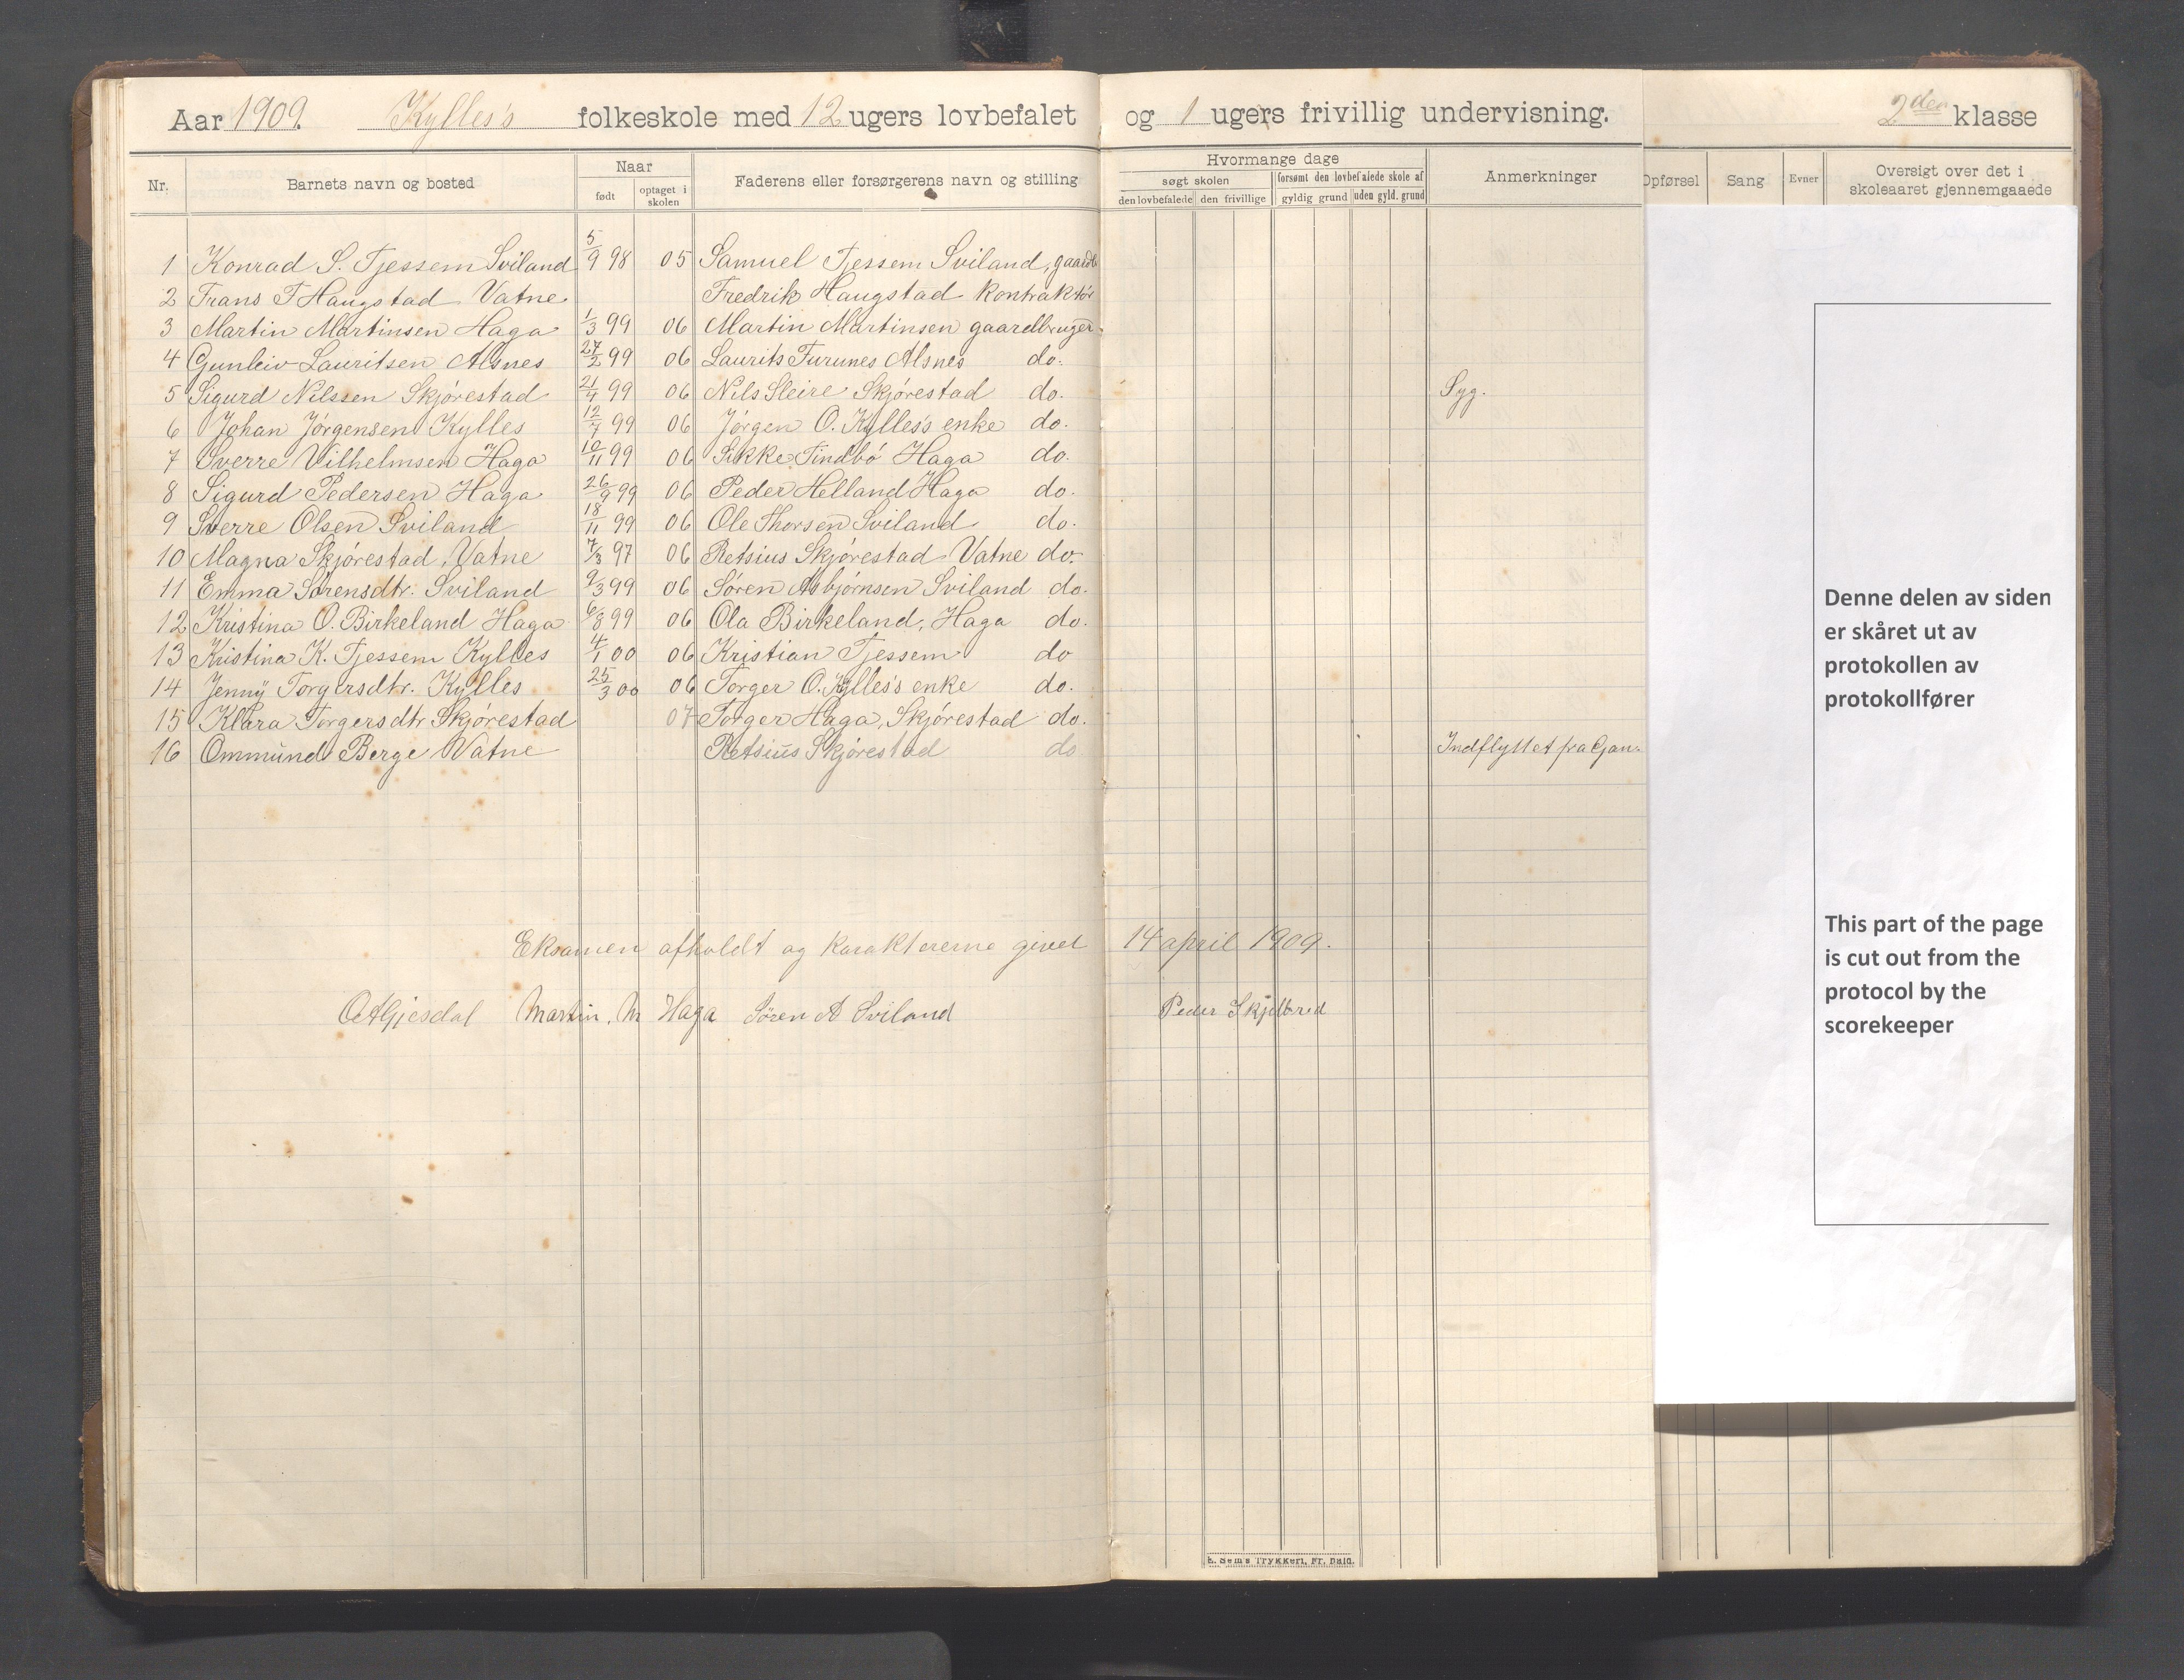 Aar 1909. Kylles's folkeskole med 12 ugers lovbefalet og 1 ugers frivillig undervisning. 2den klasse
Nr. Barnets navn og bosted Naar født optaget i skolen Faderens eller forsørgerens navn og stilling Hvormange dage søgt skolen den lovbefalede den frivillige forsømt den lovbefalede skole af gyldig grund uden gyld. grund Anmerkninger Opførsel Sang Evner Oversigt over det i skoleaaret gjennemgaaede
1 Konrad S. Tjessem Sviland 5/9 98 05 Samuel Tjessem Sviland, gaardb
2 Frans F Haugstad Vatne Fredrik Haugstad Kontraktør
3 Martin Martinsen Haga 1/3 99 06 Martin Martinsen gaardbruger
4 Gunleiv Lauritsen Alsnes 27/2 99 06 Laurits Furunes Alsnes do.
5 Sigurd Nilssen Skjørestad 21/4 99 06 Nils Sleire Skjørestad do. Syg.
6 Johan Jørgensen Kylles 12/7 99 06 Jørgen O. Kylles's enke do.
7 Sverre Vilhelmsen Haga 10/11 99 06 Sikke Tindbø Haga do.
8 Sigurd Pedersen Haga 26/9 99 06 Peder Helland Haga do.
9 Sverre Olsen Sviland 18/11 99 06 Ole Thorsen Sviland do.
10 Magna Skjørestad, Vatne 7/3 97 06 Retsius Skjørestad Vatne do.
11 Emma Sørensdtr. Sviland 9/3 99 06 Søren Asbjørnsen Sviland do.
12 Kristina O. Birkeland Haga 6/8 99 06 Ola Birkeland, Haga do.
13 Kristina K. Tjessem Kylles 4/1 00 06 Kristian Tjessem do
14 Jenny Torgersdtr. Kylles 25/3 00 06 Torger O. Kylles's enke do.
15 Klara Torgersdtr Skjørestad 07 Torger Haga, Skjørestad do.
16 Ommund Berge Vatne Retsius Skjørestad do Indflyttet fra Gan.
Eksamen afholdt og karaktererne givet 14 april 1909.
O A Gjesdal Martin. M Haga Søren A Sviland Peder Skjelbred
E. Sem's Trykkeri, Fr. hald.
Denne delen av siden
er skåret ut av
protokollen av
protokollfører
This part of the page
is cut out from the
protocol by the
scorekeeper